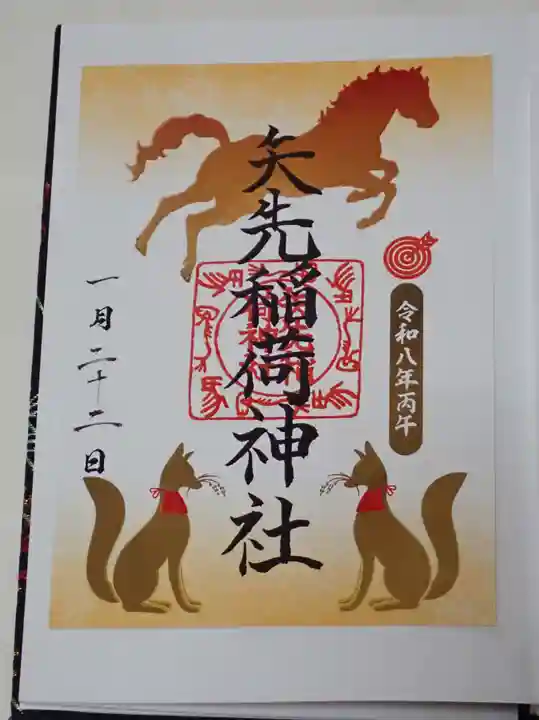 令和八年丙午
矢先稲荷神社
一月二十二日